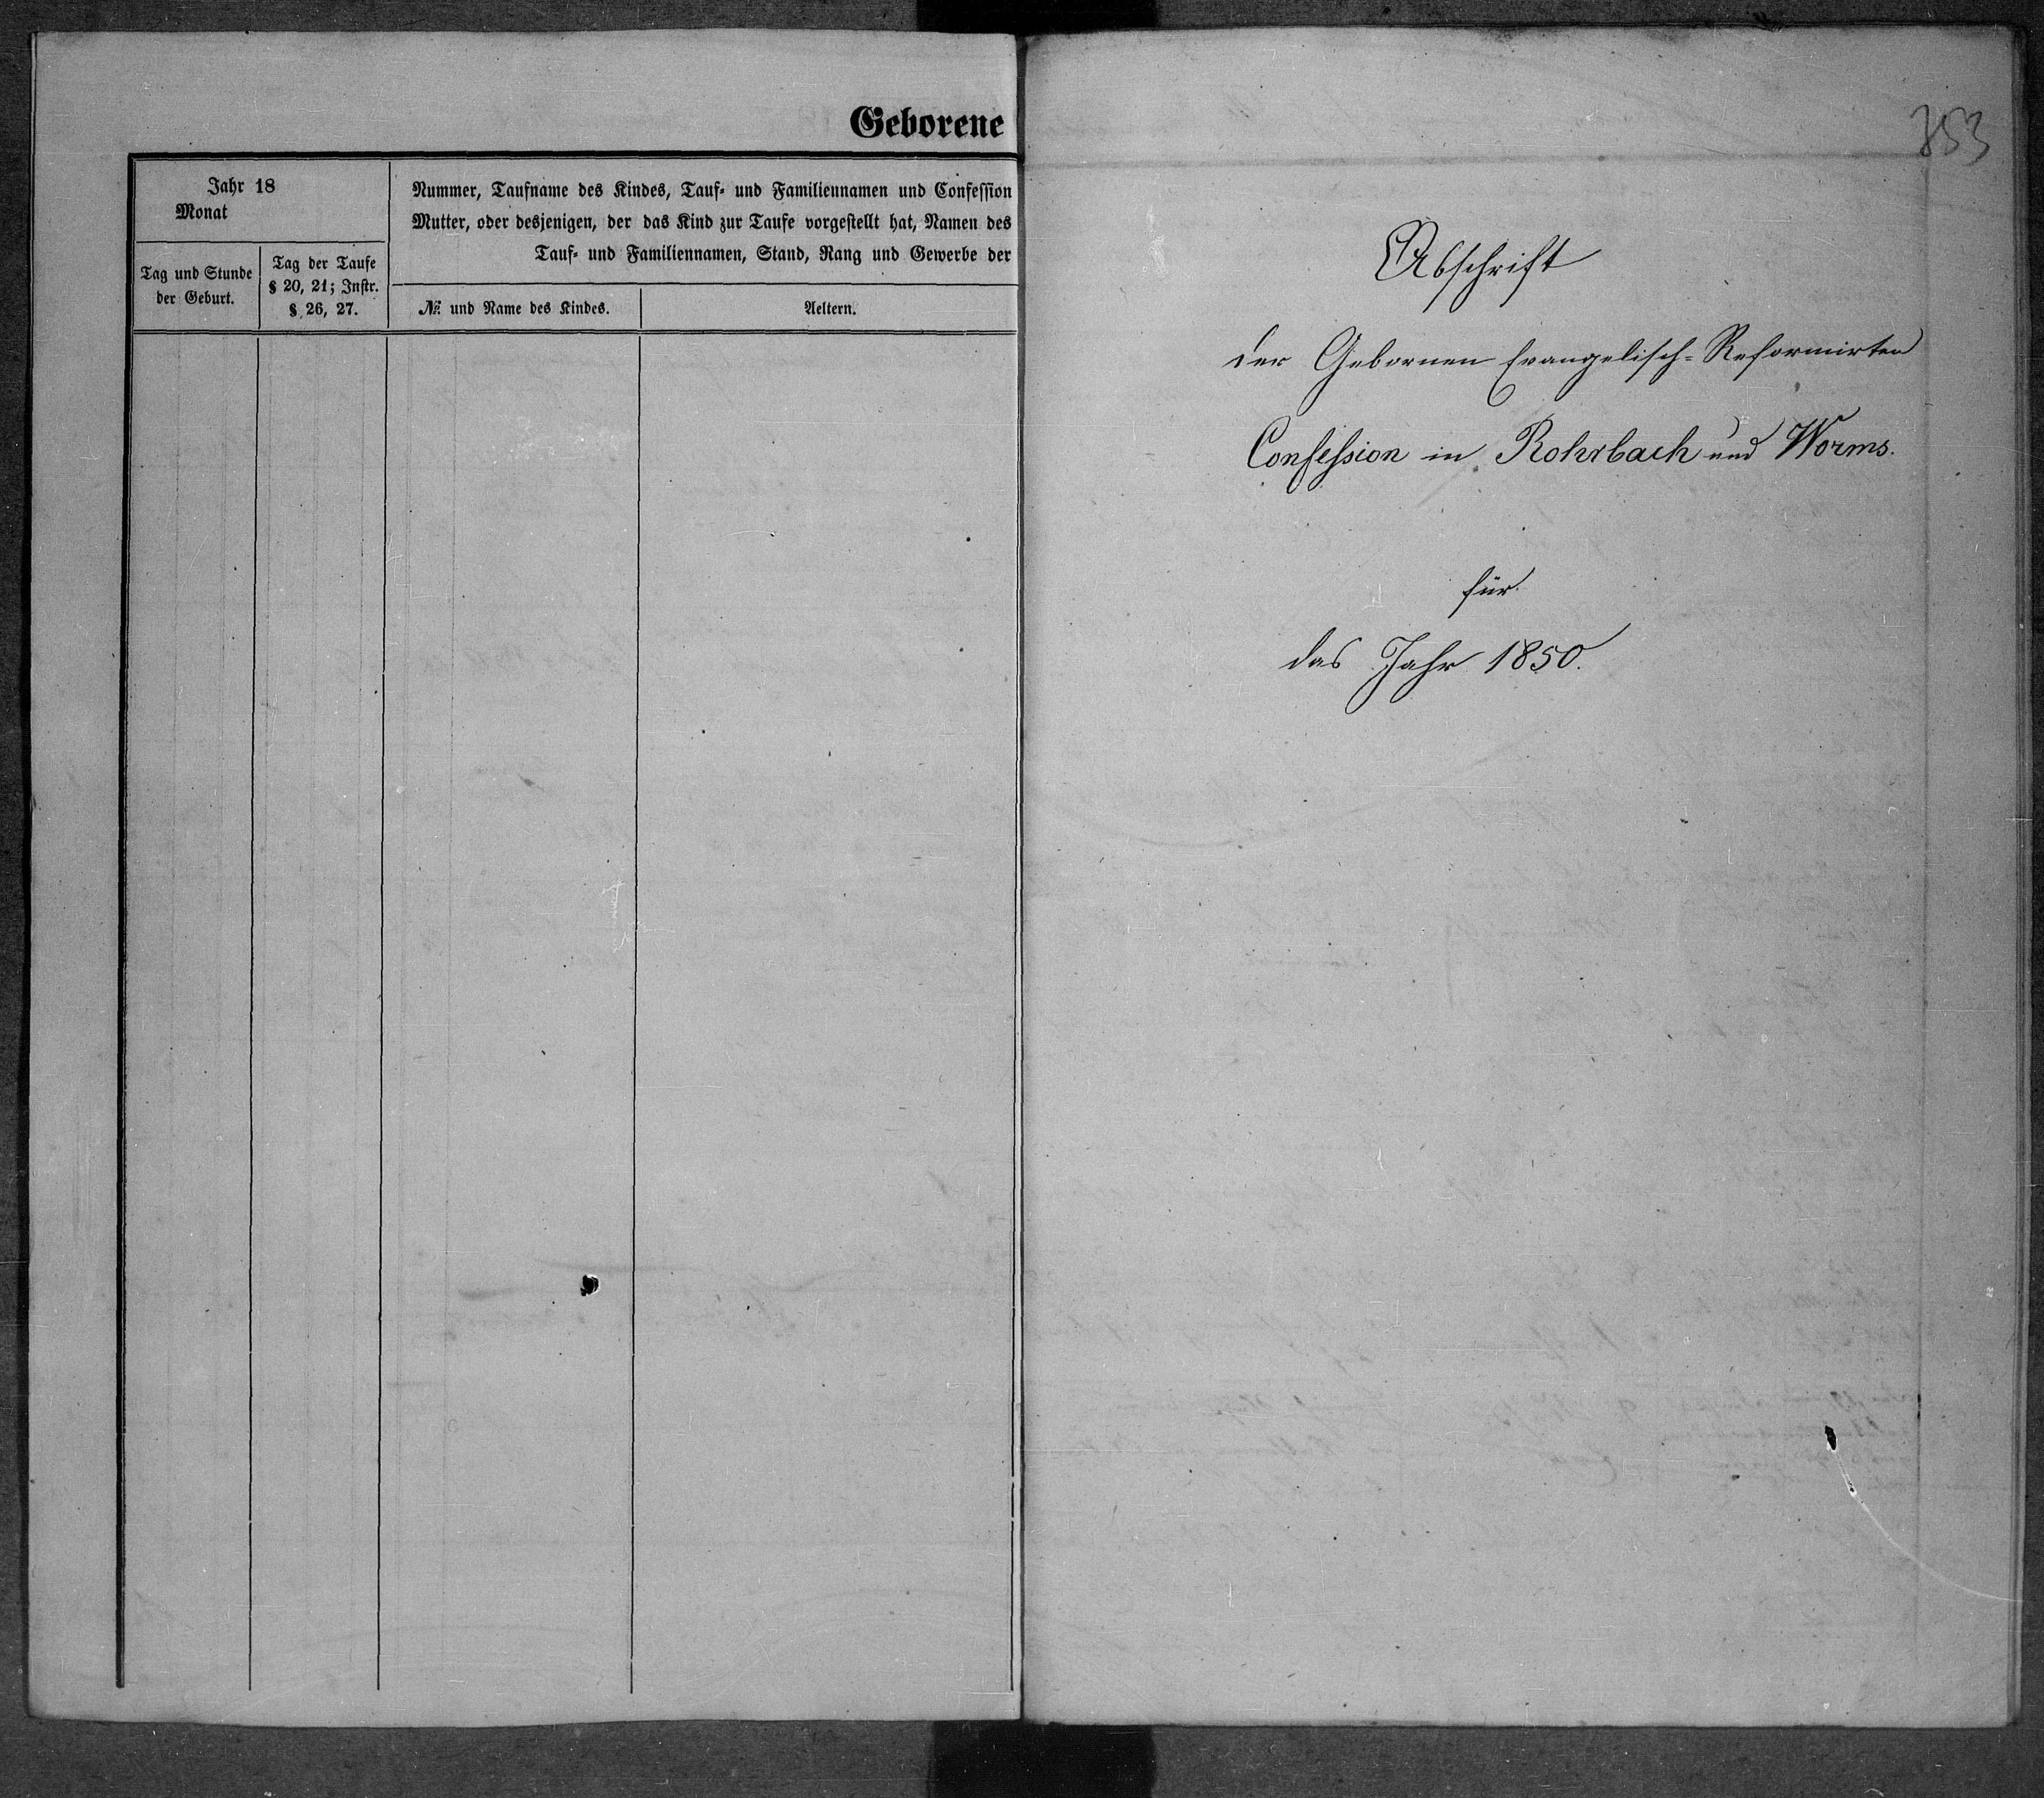 Geborene
Jahr 18
Monat
Tag und Stunde
der Geburt.
Tag der Taufe
§ 20, 21; Instr.
§ 26, 27.
Nummer, Taufname des Kindes, Tauf- und Familiennamen und Confession
Mutter, oder desjenigen, der das Kind zur Taufe vorgestellt hat, Namen des
Tauf- und Familiennamen, Stand, Rang und Gewerbe der
№ und Name des Kindes.
Aeltern.
853
Abschrift
der Gebornen Evangelisch-Reformirten
Confession in Rohrbach und Worms.
für
das Jahr 1850.